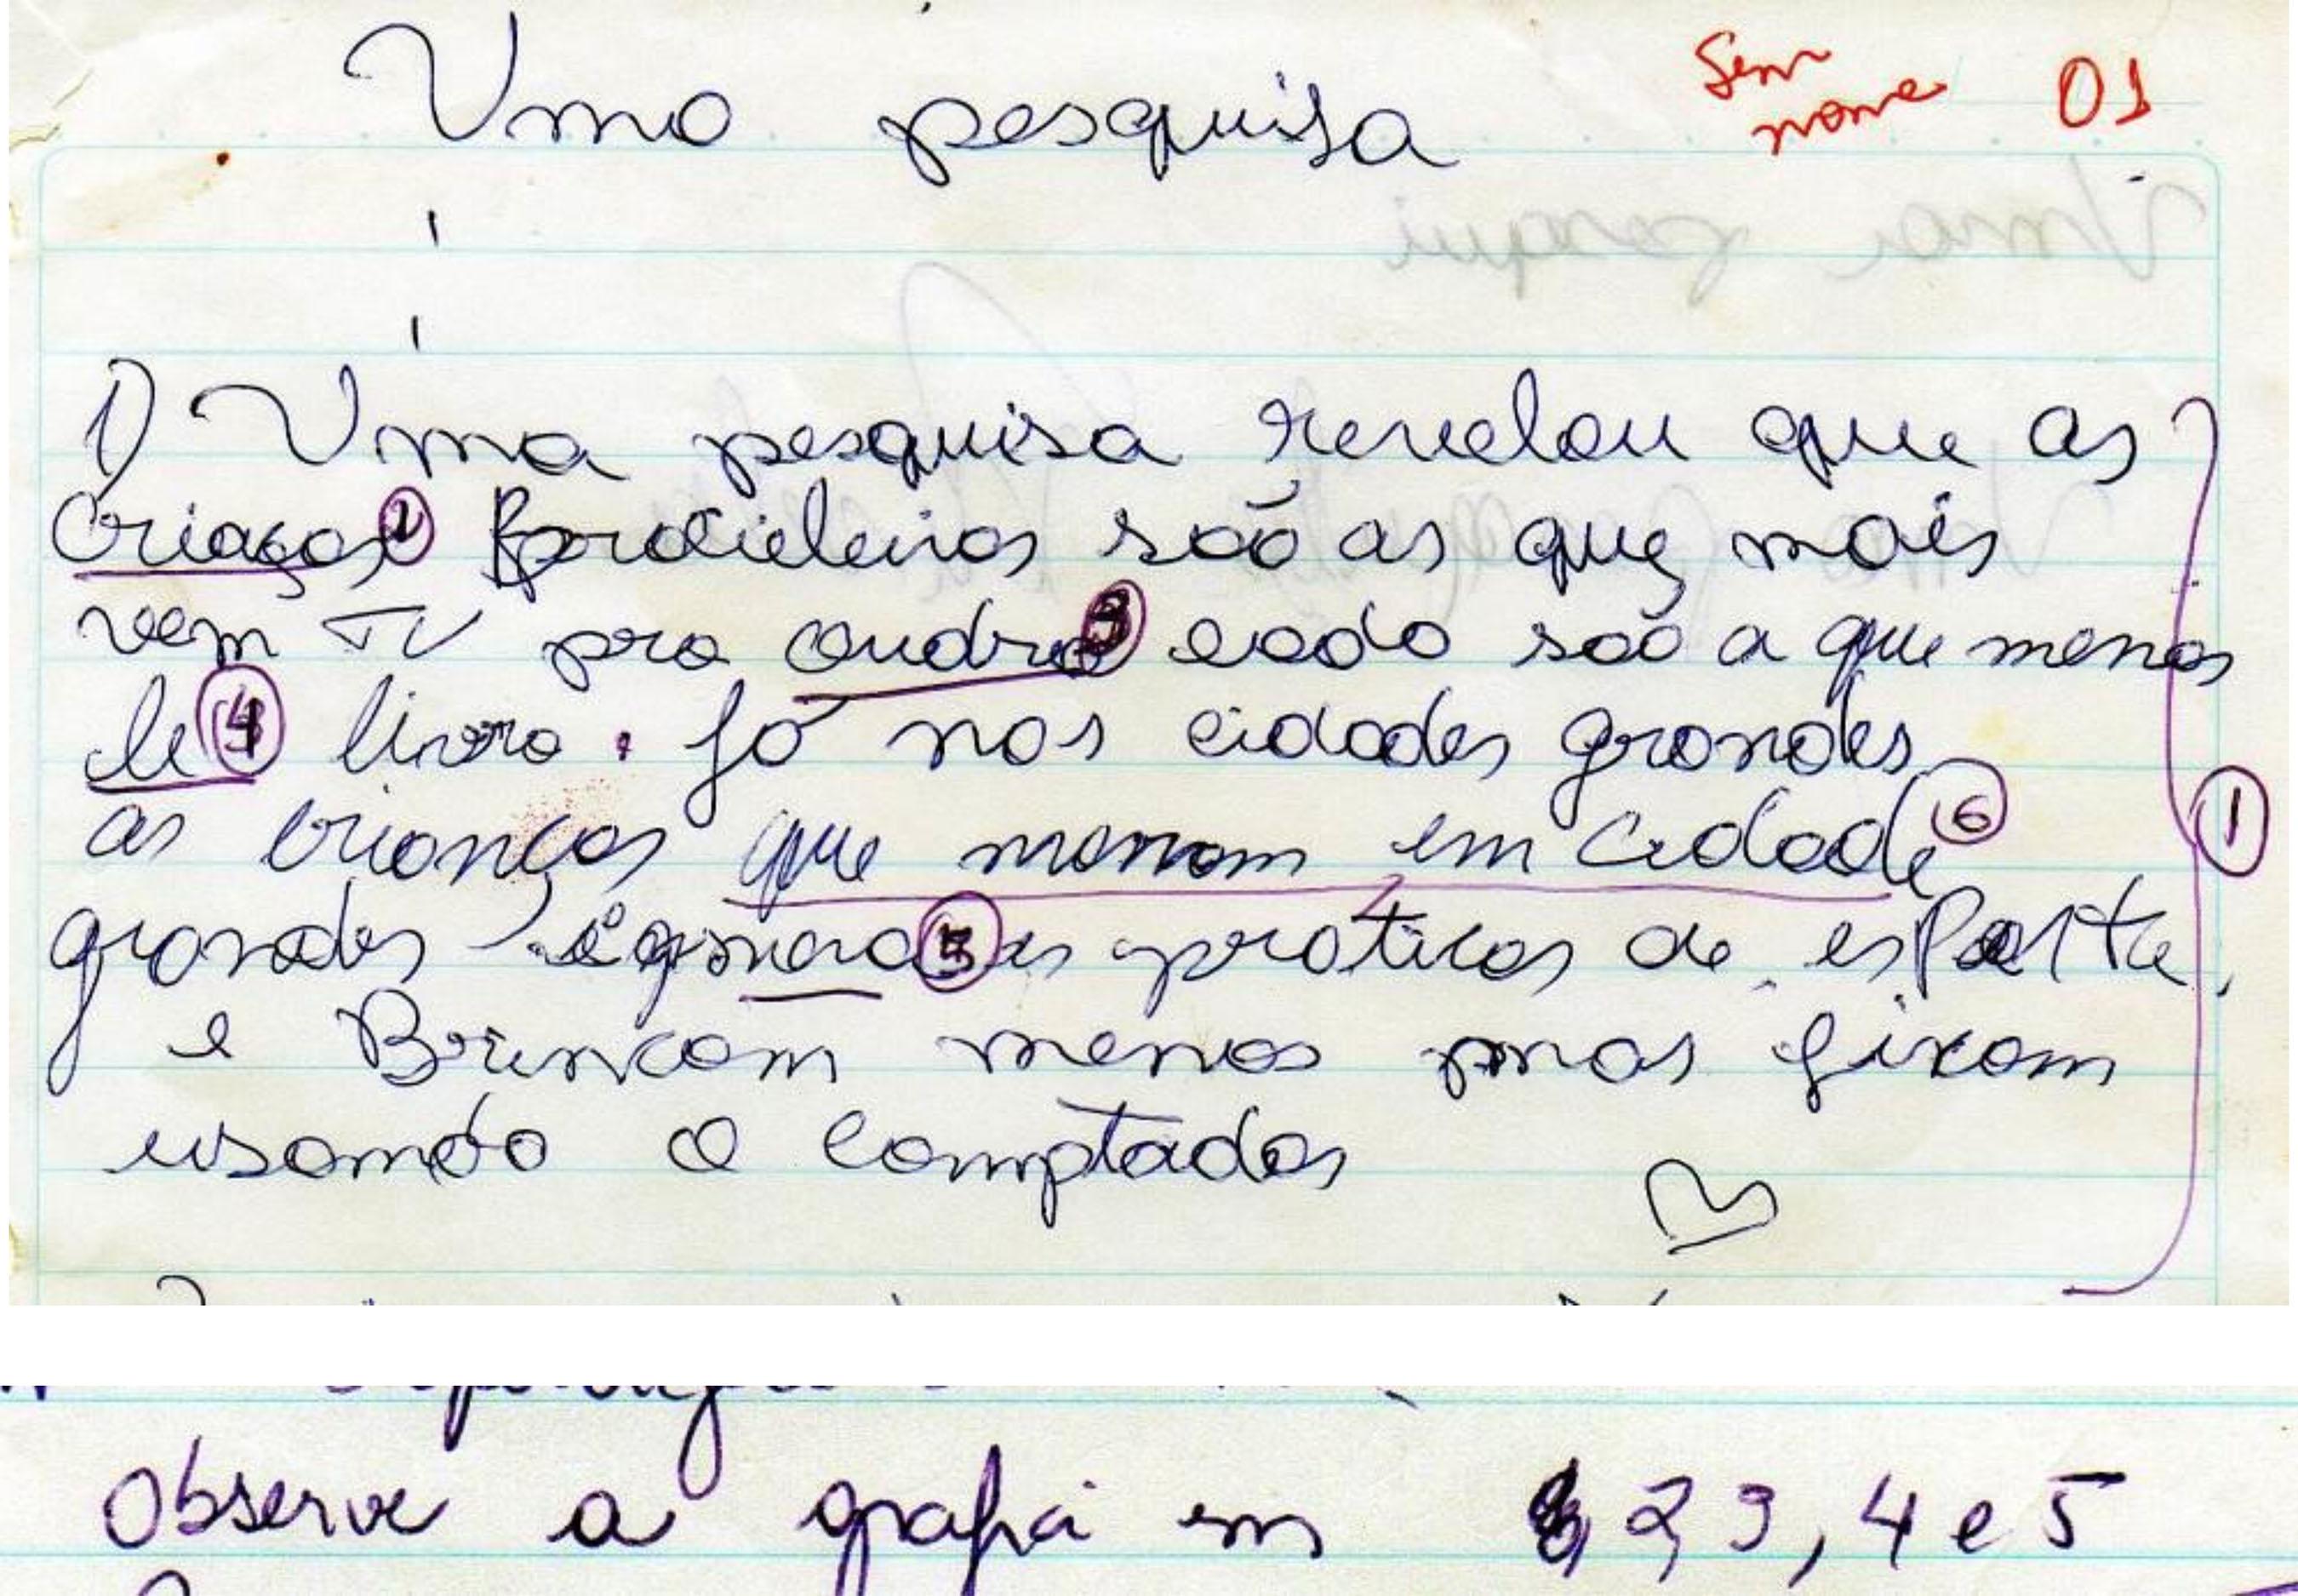 Uma pesquisa
Sem nome 01
1) Uma pesquisa revelou que as
criaças 2 são as que mais
vem TV pra oudro 3 lado são a que menos
le 4 livro. Só nas cidades grandes
as crianças que moram em cidade 6
grandes 5 praticas de esPorte, 1
e Brincam menos mas fixam
usando o comptados
Observe a grafia em 2 3, 4 e 5